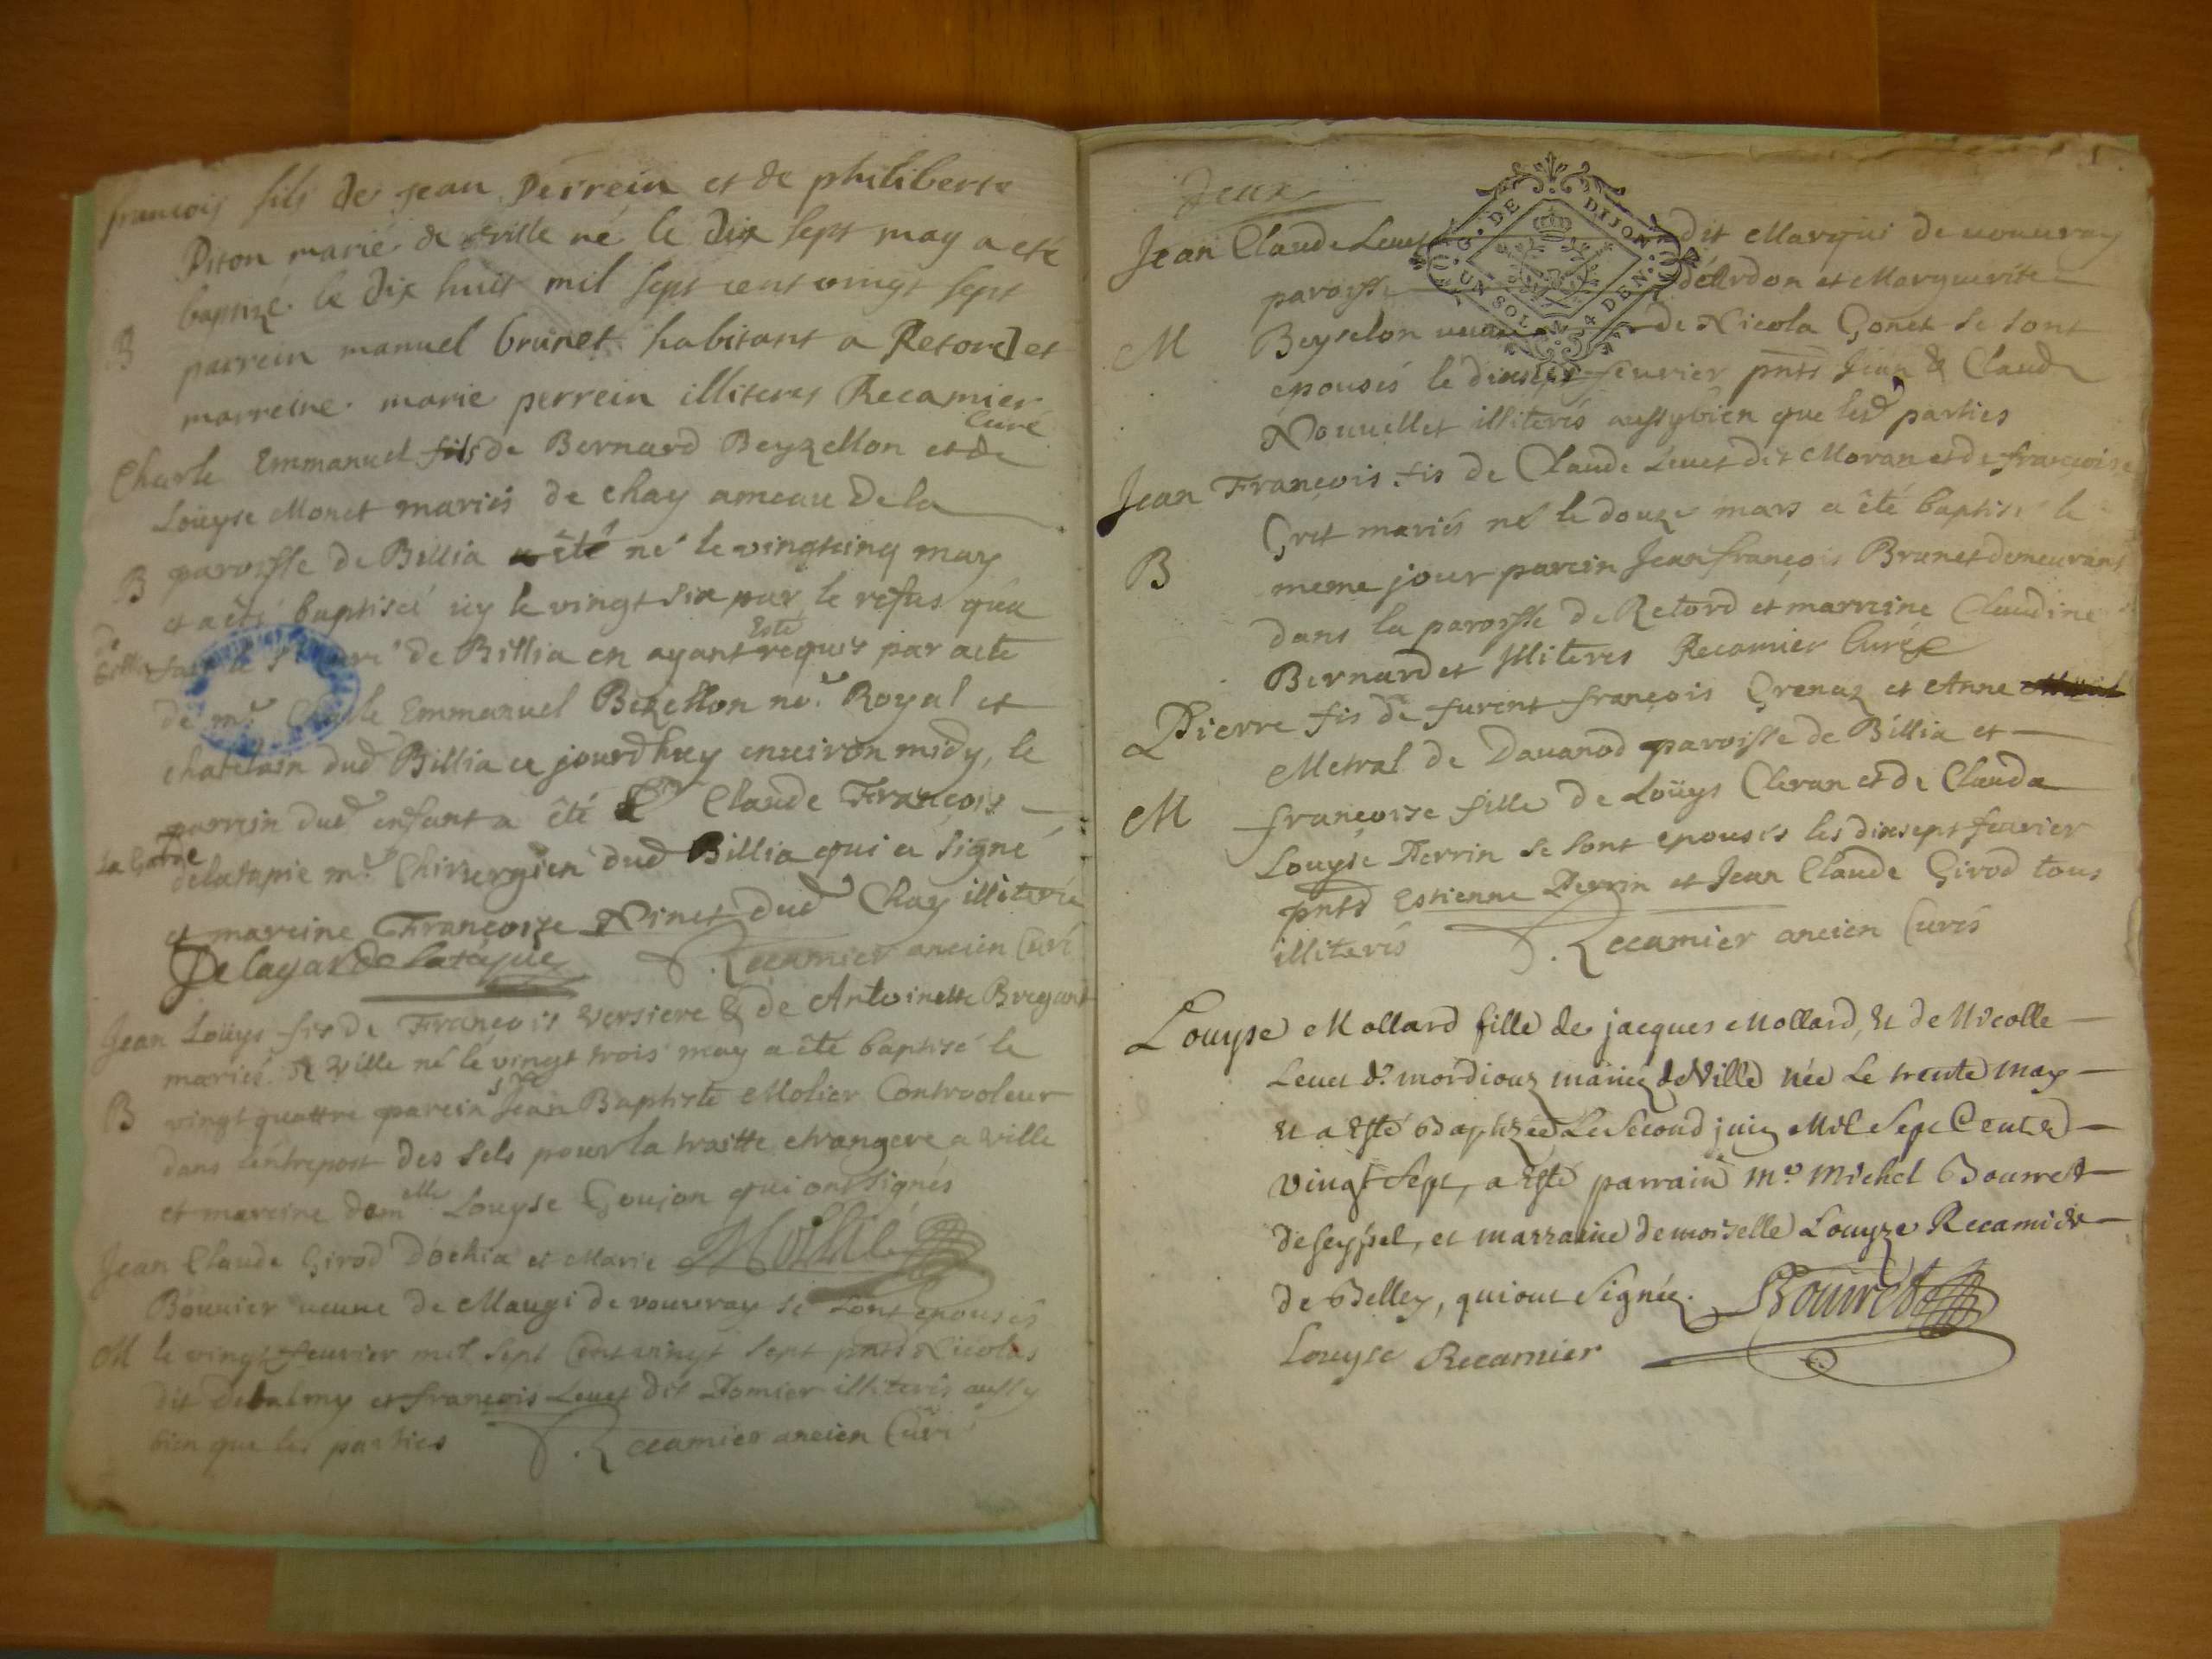 françois fils de jean Perrein et de philiberte
Piton marié de Ville né le dix sept may a eté
baptizé le dix huit mil sept cent vingt sept
B
parrein manuel brunet habitant a Retord et
marreine marie perrein illiteres Recamier
Curé
Charle Emmanuel fils de Bernard Beyzellon et de
Loüyse Monet mariés de Chay ameau De la
paroisse de Billia a été né le vingt cinq may
B
et a été baptisé icy le vingt six par le refus qu'a
fait le Sr Curé de Billia en ayant esté requis par acte
de mr Charle Emmanuel Bezellon nore Royal et
chatelain dud Billia ce jourdhuy environ midy, le
parrein dud enfant a été Sr Claude François
La Garde
delatapie mre Chirurgien dud Billia qui a signé
et mareine Françoise Ninet dud Chay illiterée
Delagarde Latapie Recamier ancien Curé
Jean Loüys fis de François Versiere & de Antoinette Bregant
mariés de Ville né le vingt trois may a été baptizé le
B
vingt quattre parein sr Jean Baptiste Molier Controoleur
dans l'entrepost des sels pour la traitte etrangere a Ville
et mareine demelle Louyse Goujon qui ont signés
Jean Claude Girod d'ochia et Marie
Bouvier veuve de Maugi de vouvray se sont epousés
M
le vingt feuvrier mil sept Cent vingt sept pnts Nicolas
dit Debalmy et françois Leuet dit Domier illiterés aussy
bien que les parties Recamier ancien Curé
deux
Jean Claude Leuet dit Marqui de vouvray
G. DE DIJON
UN SOL 4 DEN.
paroisse d'Ardon et Marguerite
M
Beyselon veuve de Nicola Gonet se sont
epousés le dixsept feuvrier pnts Jean & Claude
Nouuellet illiterés aussybien que lesd parties
Jean François fis de Claude Leuet dit Moran et de françoise
Gret mariés né le douze mars a été baptisé le
B
meme jour parein Jean françois Brunet demeurant
dans la paroisse de Retord et marreine Claudine
Bernardet Illiteres Recamier Curé
Pierre fis de furent françois Grenaz et Anne
Metral de Davanod paroisse de Billia et
M
françoise fille de Loüys Cleran et de Clauda
Louyse Perrin se sont epousés les dixsept feuvrier
pnts Estienne Perrin et Jean Claude Girod tous
illiterés Recamier ancien Curés
Louyse Mollard fille de jacques Mollard, et de Nicolle
Leuet dt mordiouz mariez de Ville née Le trente may
et a Esté Baptizée Le Second juin Mil Sept Cent et
vingt Sept, a Esté parrain mre Michel Bourret
de seyssel, et marraine demoiselle Louyze Recamier
de Belley, qui ont Signéz. Bourret
Louyse Recamier